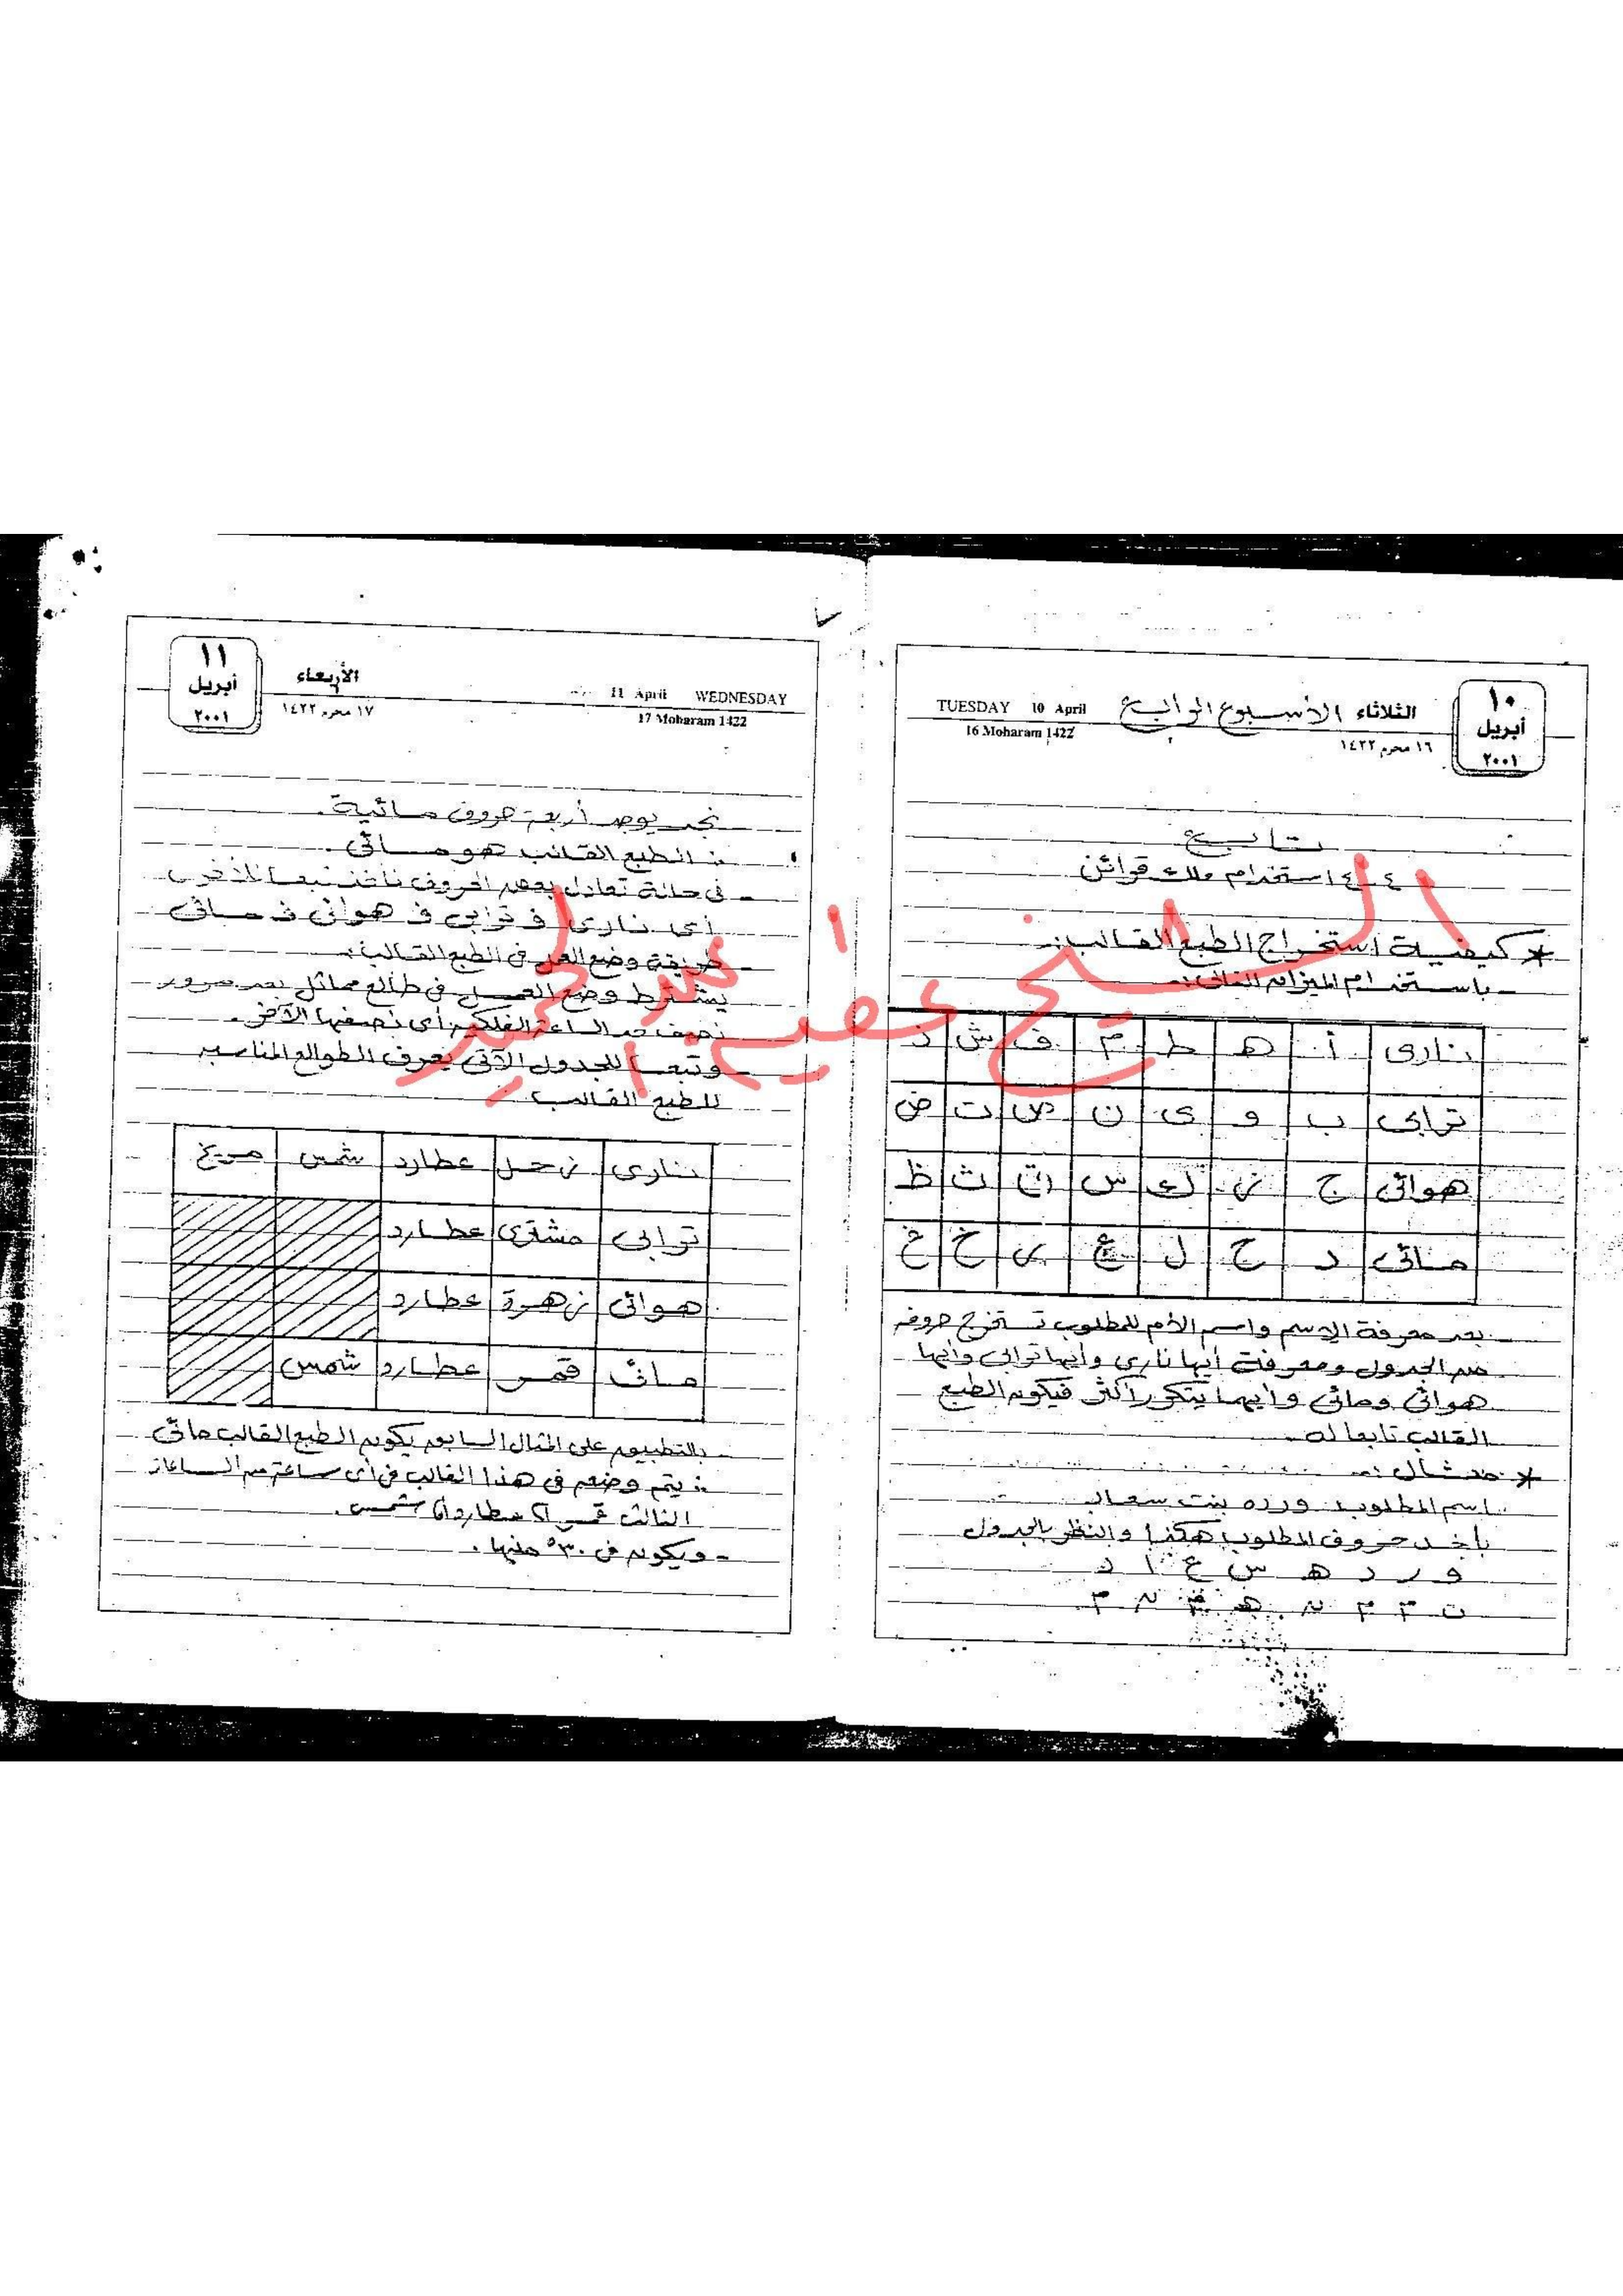 ١٠ أبريل ٢٠٠١
الثلاثاء الأسبوع الرابع
TUESDAY 10 April
١٦ محرم ١٤٢٢
16 Moharam 1422
تابع
٤-٤ استخدام ملك قوائن
* كيفية استخراج الطبع الغالب:-
- باستخدام الميزان التالى:-
نارى أ ه ط م ف ش ذ
ترابى ب و ى ن ص ت ض
هوائى ج ز ك س ق ث ظ
مائى د ح ل ع ر خ غ
- بعد معرفة الإسم واسم الأم للمطلوب تستخرج حروفه
من الجدول ومعرفة أيها نارى وأيها ترابى وأيها
هوائى ومائى وأيهما يتكرر أكثر فيكون الطبع
الغالب تابعا له.
* مثال:-
اسم المطلوب ورده بنت سعاد
بأخذ حروف المطلوب هكذا والنظر بالجدول
و ر د ه س ع ا د
ت م م ن ه م ن م
١١ أبريل ٢٠٠١
الأربعاء
11 April WEDNESDAY
١٧ محرم ١٤٢٢
17 Moharam 1422
نجد يوجد أربعة حروف مائية.
∴ الطبع الغالب هو مائى.
- فى حالة تعادل بعض الحروف نأخذ تبعا للأخرى
أى نارى ف ترابى ف هوائى ف مائى
- طريقة وضع العمل فى الطبع الغالب:-
يشترط وضع العمل فى طالع مماثل بعد مرور
نصف من الساعة الفلكية أى نصفها الآخر.
- وتبعا للجدول الآتى يعرف الطوالع المناسبة
للطبع الغالب:-
نارى زحل عطارد شمس مريخ
ترابى مشترى عطارد
هوائى زهرة عطارد
مائى قمر عطارد شمس
- بالتطبيق على المثال السابق يكون الطبع الغالب مائى
∴ يتم وضعه فى هذا الغالب فى أى ساعة من الساعات
الثالث قمر أو عطارد أو شمس.
- ويكون فى ٣٠ منها.
الشيخ